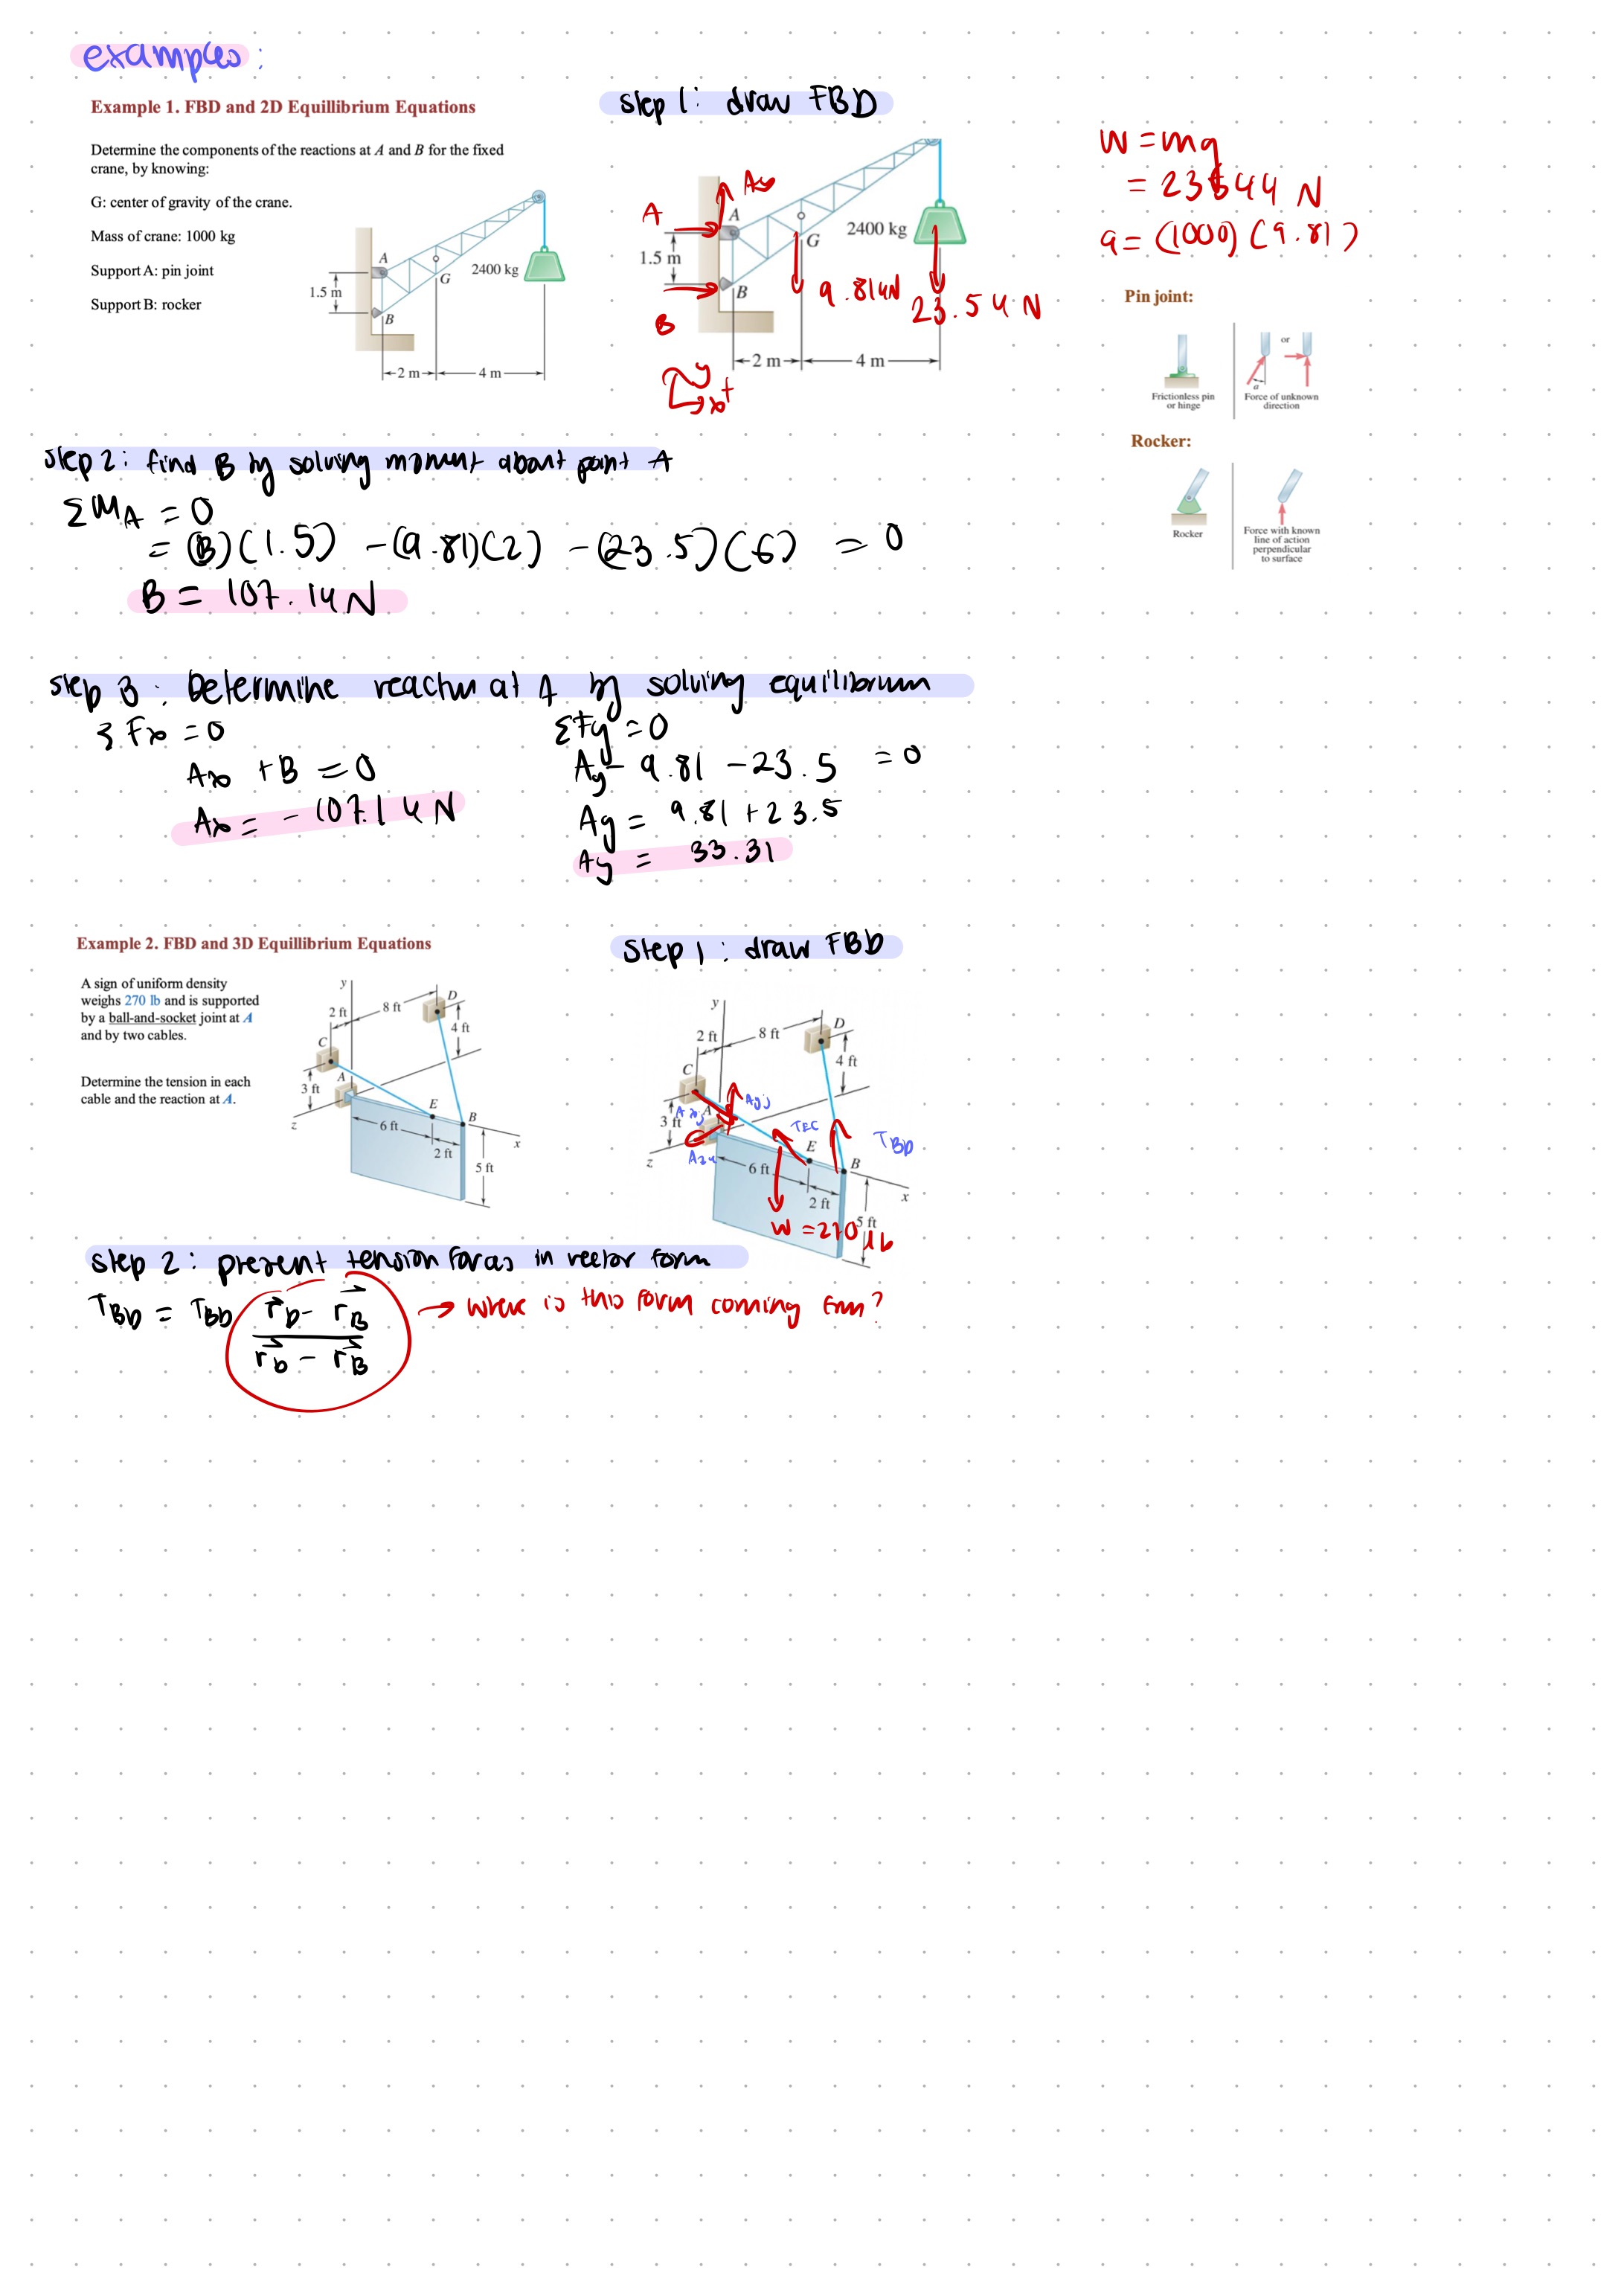 examples:
Example 1. FBD and 2D Equillibrium Equations
Determine the components of the reactions at A and B for the fixed
crane, by knowing:
G: center of gravity of the crane.
Mass of crane: 1000 kg
Support A: pin joint
Support B: rocker
A
G
2400 kg
1.5 m
B
2 m
4 m
step 1: draw FBD
Ay
A
A
G
2400 kg
1.5 m
B
9.81kN
23.5kN
B
2 m
4 m
y
x
+
W = mg
= 23544 N
G = (1000)(9.81)
Pin joint:
Frictionless pin
or hinge
or
α
Force of unknown
direction
Rocker:
Rocker
Force with known
line of action
perpendicular
to surface
step 2: find B by solving moment about point A
ΣMA = 0
= (B)(1.5) - (9.81)(2) - (23.5)(6) = 0
B = 107.1kN
step 3: Determine reaction at A by solving equilibrium
ΣFx = 0
Ax + B = 0
Ax = -107.1kN
ΣFy = 0
Ay - 9.81 - 23.5 = 0
Ay = 9.81 + 23.5
Ay = 33.31
Example 2. FBD and 3D Equillibrium Equations
A sign of uniform density
weighs 270 lb and is supported
by a ball-and-socket joint at A
and by two cables.
Determine the tension in each
cable and the reaction at A.
y
D
2 ft
8 ft
4 ft
C
A
3 ft
E
B
z
6 ft
x
2 ft
5 ft
step 1: draw FBD
y
D
2 ft
8 ft
4 ft
C
Ayj
A
3 ft
TEC
TBD
E
z
Azk
6 ft
B
x
2 ft
5 ft
W = 270 lb
step 2: present tension forces in vector form
TBD = TBD rD - rB
rD - rB
→ where is this form coming from?